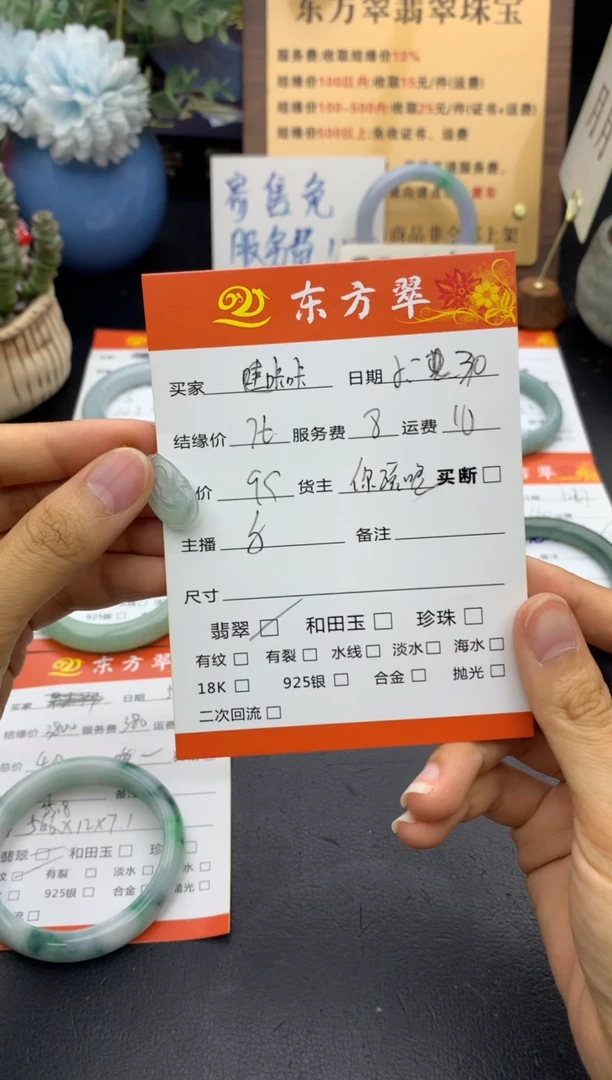 东方翠翡翠珠宝
服务费:收取结缘价10%
结缘价100以内:收取15元/件(运费)
结缘价100-500内:收取25元/件(证书+运费)
结缘价500以上:免收证书、运费
寄售免
服务费!
商品非全部上架
东方翠
买家 哇咔咔 日期
结缘价 76 服务费 8 运费
价 95 货主 买断
主播 备注
尺寸
翡翠 和田玉 珍珠
有纹 有裂 水线 淡水 海水
18K 925银 合金 抛光
二次回流
东方翠
买家 日期
结缘价 3800 服务费 380 运费
总价
备注
56.6×12×7.1
翡翠 和田玉
有裂 淡水
925银 合金 抛光
925银